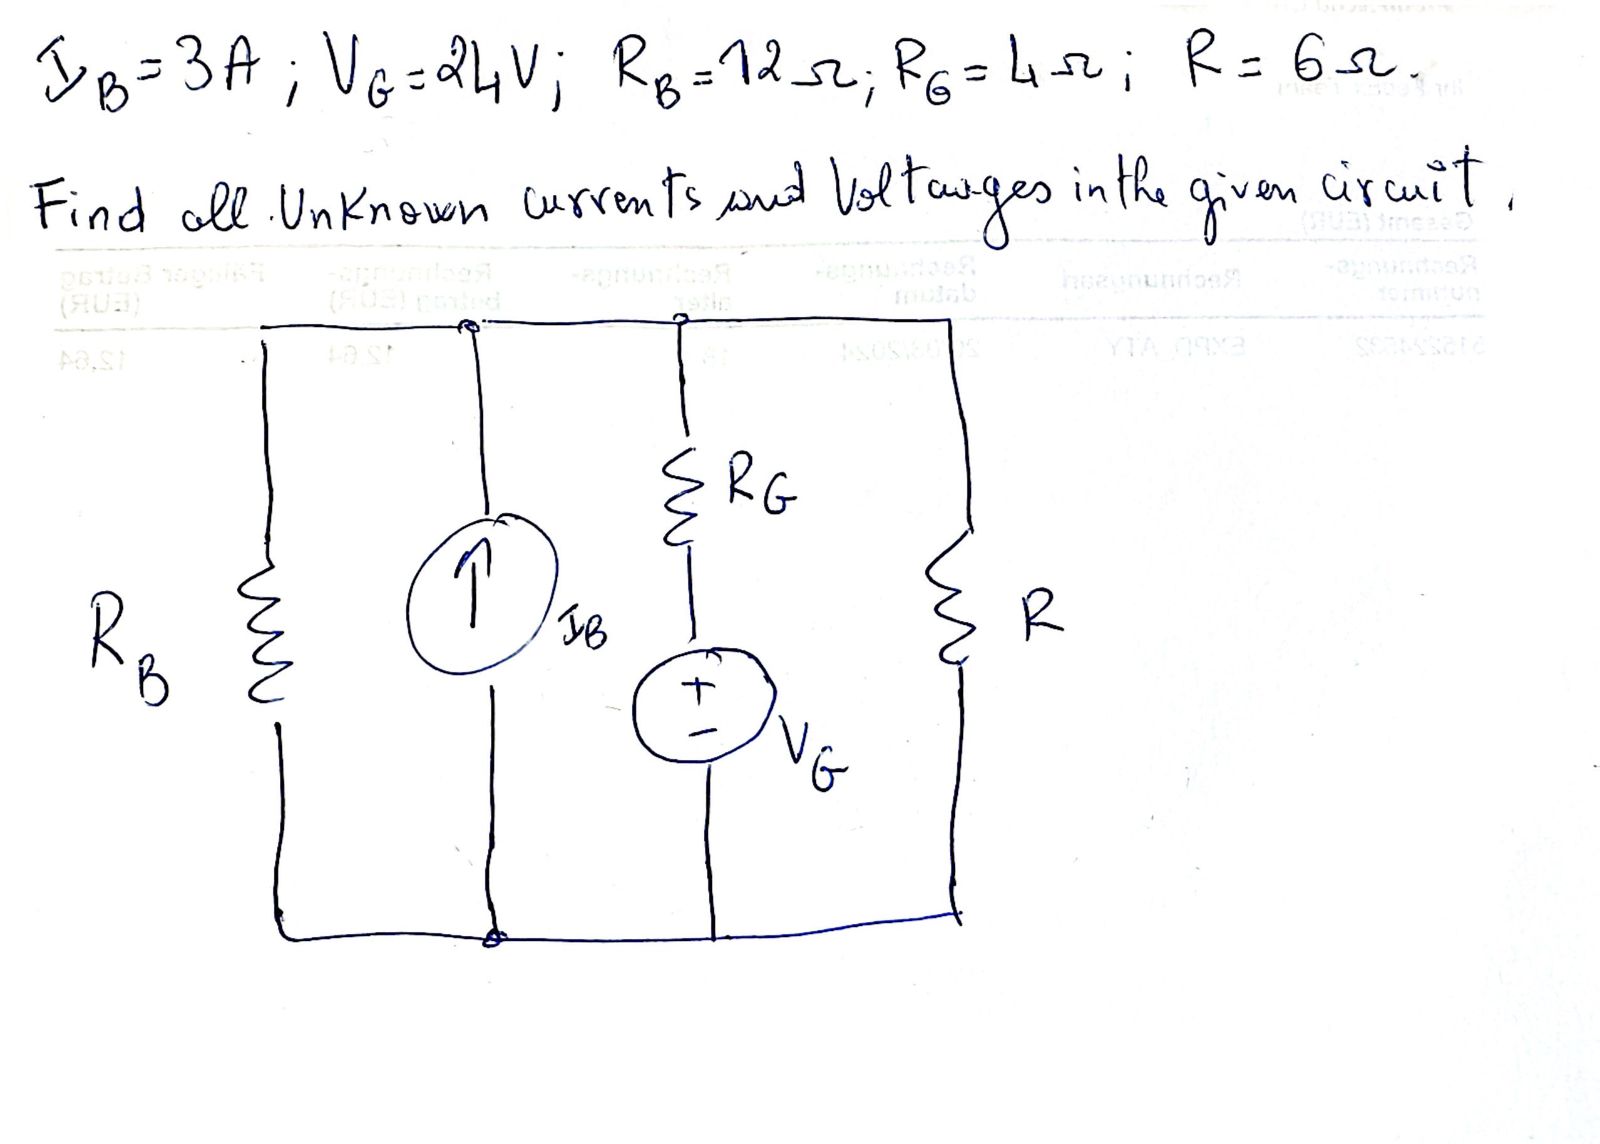 I_B = 3A ; V_G = 24V ; R_B = 12Ω ; R_G = 4Ω ; R = 6Ω.
Find all Unknown currents and Voltages in the given circuit.
R_G
I_B
R
R_B
+
-
V_G